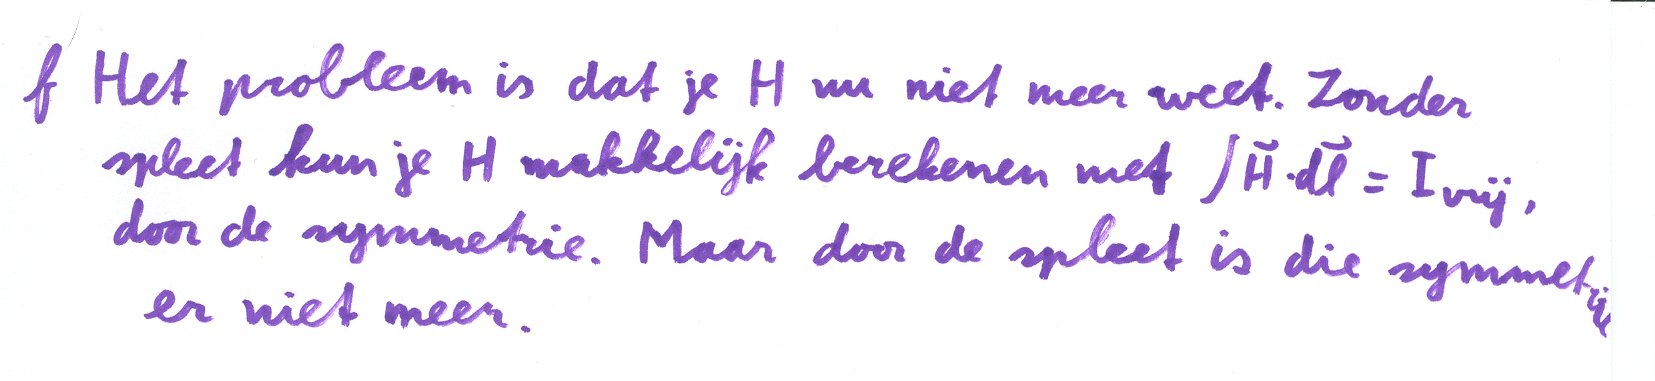 f Het probleem is dat je H nu niet meer weet. Zonder
spleet kun je H makkelijk berekenen met ∫H̄·dl̄ = I vrij,
door de symmetrie. Maar door de spleet is die symmetrie
er niet meer.